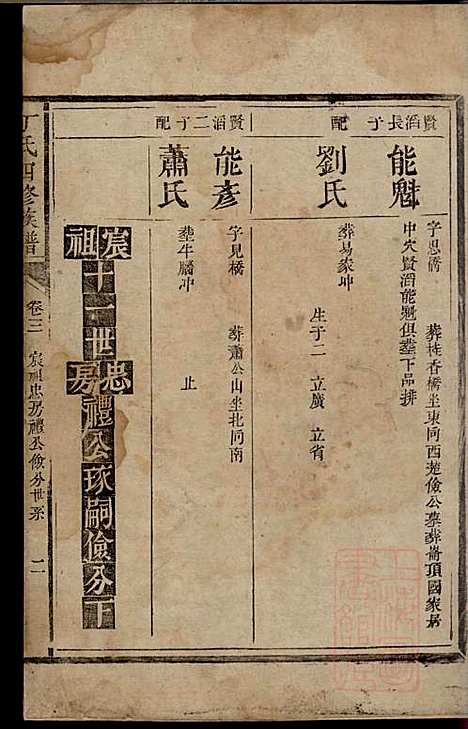 賢滔長子
能魁
字思僑　葬桂香橋坐東向西楚儉公墓葬嵛頂國家屋
中穴賢滔能魁俱葬下品排
配
劉氏
葬易家坤
生子二　立廣　立省
賢滔二子
能彥
字見橋　葬蕭公山坐北向南
配
蕭氏
葬牛屬冲　止
宸祖十一世忠房禮公琢嗣儉分下
丁氏四修族譜
卷三
宸祖忠房禮公儉分世系
二